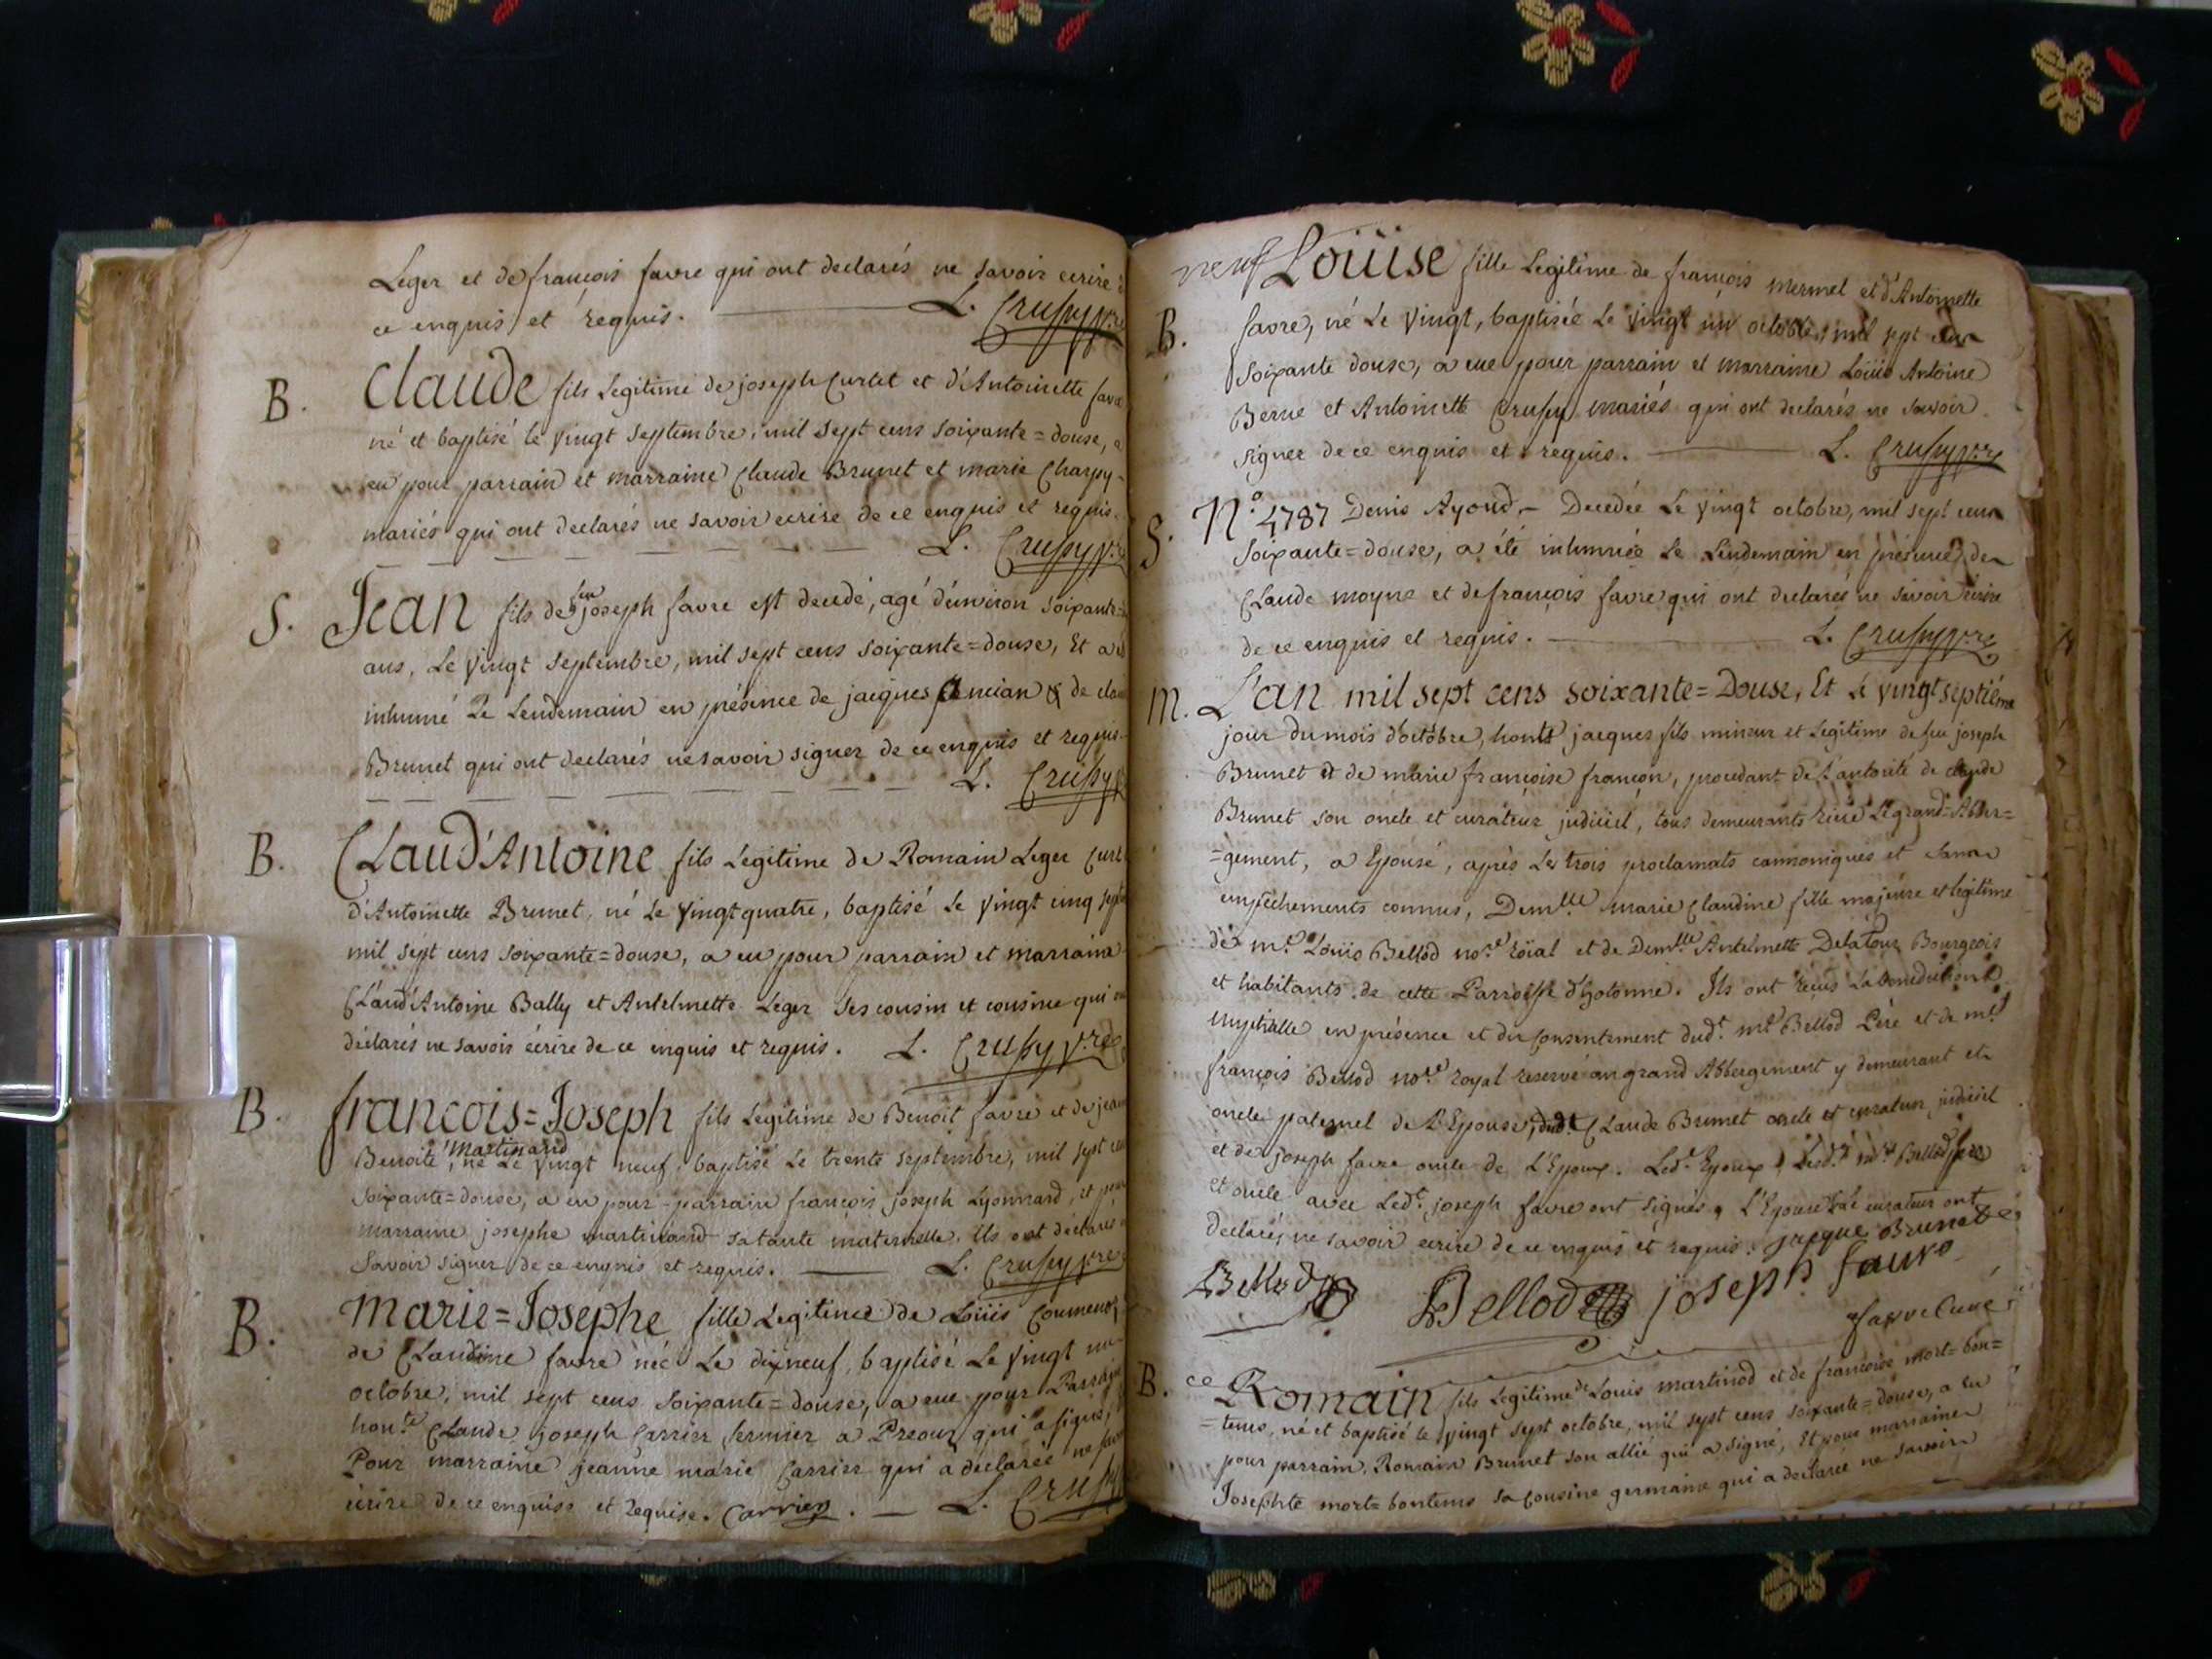 Leger et de françois favre qui ont declarés ne savoir ecrire
ce enquis et requis. L. Crussy p.re
B. Claude fils Legitime de joseph Curtet et d'Antoinette favre
né et baptisé le vingt septembre, mil sept cens soixante=douse, a
eu pour parrain et marraine Claude Brunet et marie Charpy
mariés qui ont declarés ne savoir ecrire de ce enquis et requis.
L. Crussy p.re
S. Jean fils de feu joseph favre est decedé, agé d'environ soixante=
ans, Le vingt septembre, mil sept cens soixante=douse, Et a
inhumé Le Lendemain en présence de jacques & de
Brunet qui ont declarés ne savoir signer de ce enquis et requis.
L. Crussy
B. Claud'Antoine fils Legitime de Romain Leger
d'Antoinette Brunet, né Le vingt quatre, baptisé Le vingt cinq
mil sept cens soixante=douse, a eu pour parrain et marraine
Claud'Antoine Bally et Antelmette Leger ses cousin et cousine qui
déclarés ne savoir écrire de ce enquis et requis. L. Crussy p.re
B. françois=Joseph fils Legitime de Benoit favre et de
Benoite Martinand, né Le vingt neuf, baptisé Le trente septembre, mil sept
soixante=douse, a eu pour parrain françois joseph Lyonnard, et pour
marraine josephe martinand sa tante maternelle. Ils ont déclarés
savoir signer de ce enquis et requis. L. Crussy p.re
B. Marie=Josephe fille Legitime de Loüis
de Claudine favre née Le dixneuf, baptisé Le vingt
octobre, mil sept cens soixante=douse, a eue pour Parrain
hon.te Claude joseph Carrier fermier a qui a signé,
Pour marraine jeanne marie Carrier qui a déclarée ne
écrire de ce enquise et requise. Carrier. L. Crussy
neuf Loüise fille Legitime de françois mermet et d'Antoinette
B. favre, né Le vingt, baptisée Le vingt un octobre, mil sept cens
soixante douse, a eue pour parrain et marraine Loüis Antoine
Berne et Antoinette Crussy mariés qui ont declarés ne savoir
signer de ce enquis et requis. L. Crussy p.re
S. N.o 4787 Denis Ayoud, Decedée Le vingt octobre, mil sept cens
soixante=douse, a été inhumée Le Lendemain en présence de
Claude moyne et de françois favre qui ont declarés ne savoir écrire
de ce enquis et requis. L. Crussy p.re
M. L'an mil sept cens soixante=Douse, Et Le vingt septiéme
jour du mois d'octobre, jacques fils mineur et Legitime de feu joseph
Brunet et de marie françoise françon, procedant de L'autorité de claude
Brunet son oncle et curateur judiciel, tous demeurants rière Le grand=Aber=
=gement, a Epousé, après Les trois proclamats cannoniques et sans
empêchements connus, Dem.lle marie Claudine fille majeure et legitime
de m.e Loüis Bellod no.re roïal et de Dem.lle Antelmette Delatour Bourgeois
et habitants de cette Parroisse d'hotonne. Ils ont reçus La benediction
nuptialle en présence et du consentement dud.t m.e Bellod Père et de m.e
françois Bellod no.re royal reservé au grand Abbergement y demeurant et
oncle paternel de L'Epouse, dud.t Claude Brunet oncle et curateur judiciel
et de joseph favre oncle de L'Epoux. Led.t Epoux, Lesd.ts m.es Bellod père
et oncle avec Led.t joseph favre ont signés, L'Epouse et Le curateur ont
declarés ne savoir ecrire de ce enquis et requis. jacque Brunet
Bellod Bellod joseph favre
favre Curé
B. Romain fils Legitime de Louis martinod et de françoise mort=bon=
=tems, né et baptisé le vingt sept octobre, mil sept cens soixante=douse, a eu
pour parrain, Romain Brunet son allié qui a signé, Et pour marraine
Josephte mort=bontems sa cousine germaine qui a declarée ne savoir